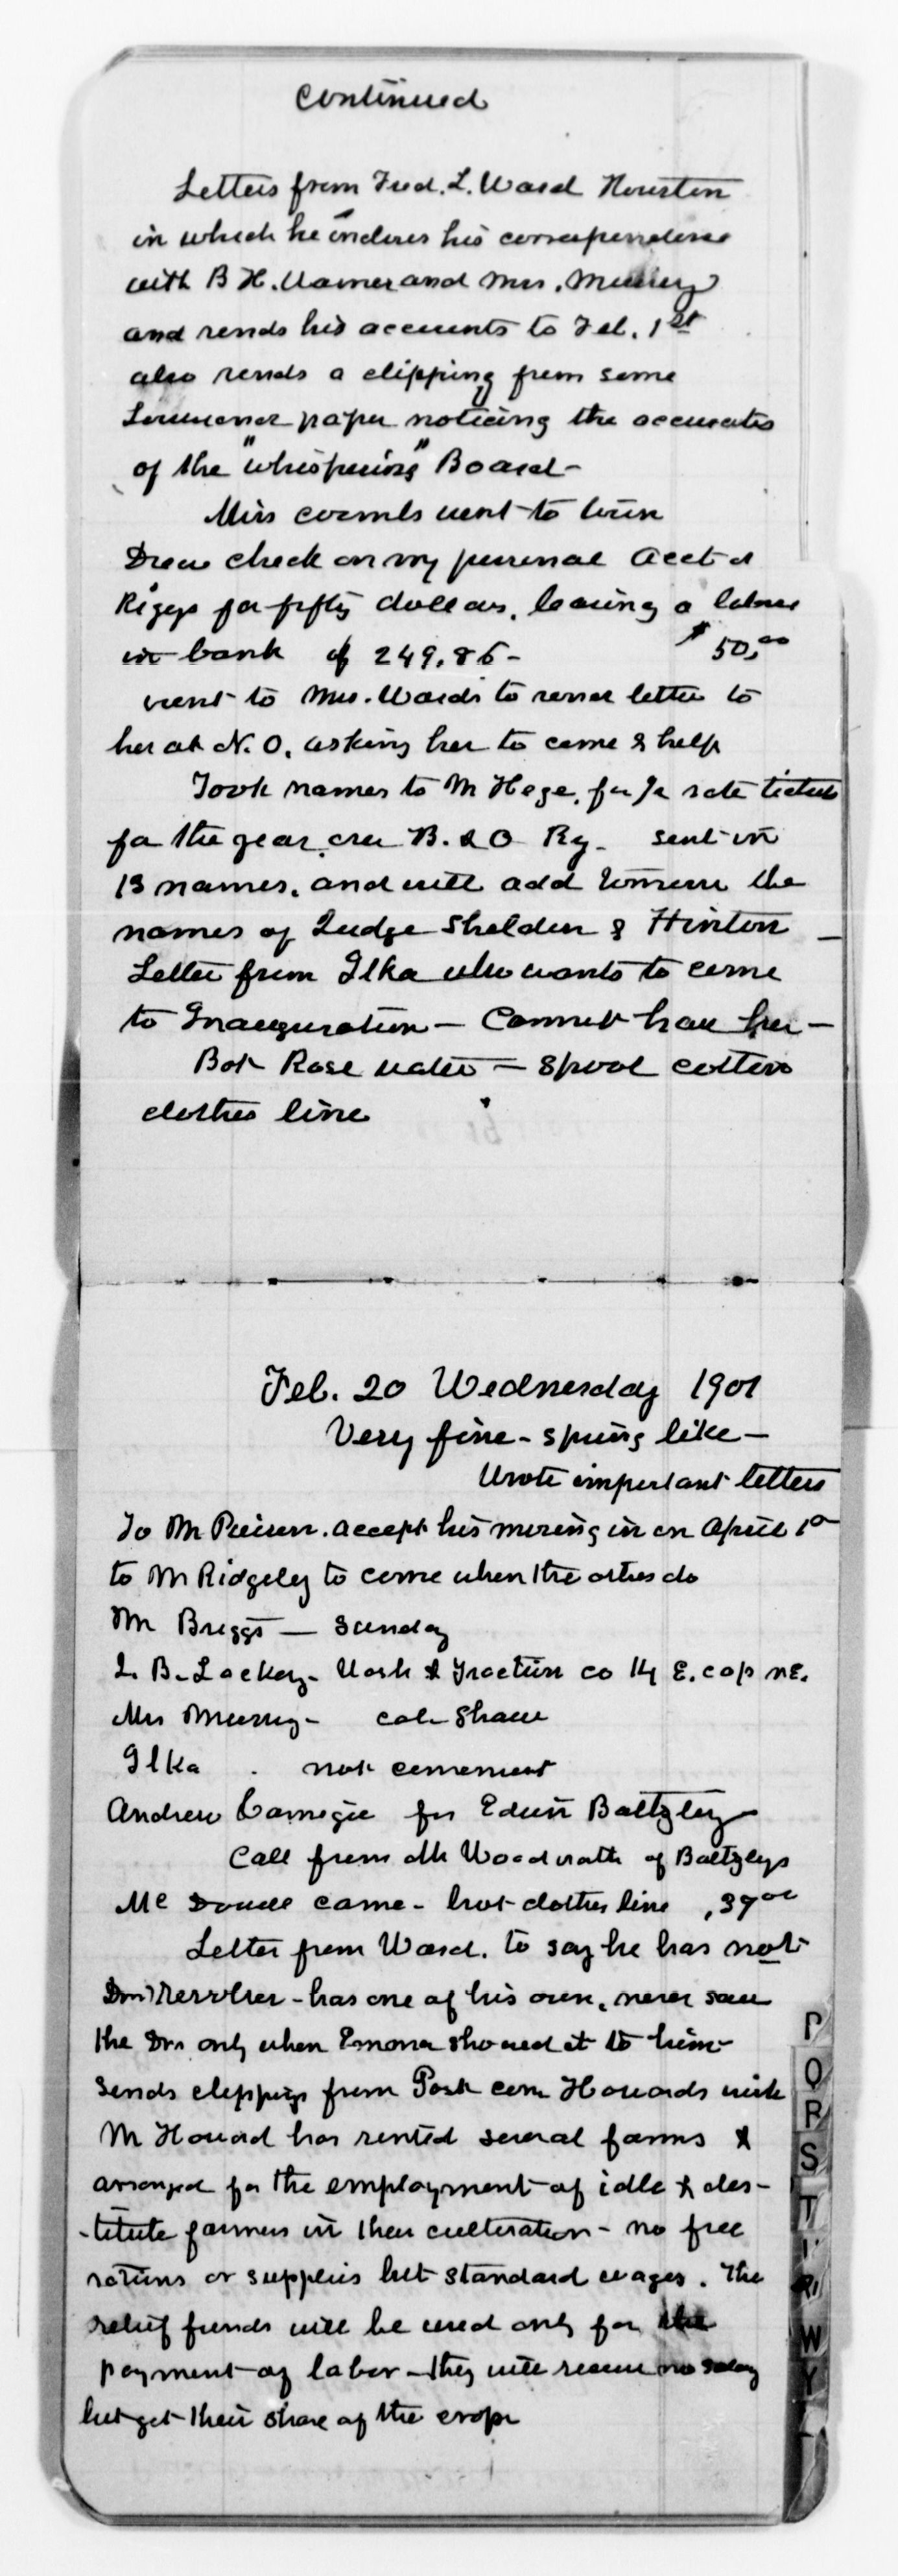 Continued
Letters from Fred. L. Ward Houston
in which he incloses his correspondence
with B H. Warner and Mrs. Mussey
and sends his accounts to Feb. 1st
also sends a clipping from some
paper noticing the
of the "whispering" Board -
Miss coombs went to town
Drew check on my personal acct at
Riggs for fifty dollars. leaving a balance
in bank of 249.86 - $50.00
went to Mrs. Wards to send letter to
her at N. O. asking her to come & help
Took names to Mr Hege. for ½ rate tickets
for the year over B. & O Ry - sent in
13 names. and will add tomorrow the
names of Judge Sheldon & Hinton -
Letter from Ilka who wants to come
to Inauguration - Cannot have her -
Bot Rose water - spool cotton
clothes line
Feb. 20 Wednesday 1901
Very fine - spring like -
Wrote important letters
To Mr . accept his moving in on April 1st
to Mr Ridgeley to come when the others do
Mr Briggs - Sunday
L. B. Lackey - Wash & Traction co 14 E. cap n E.
Mrs Mussey - cab Shaw
Ilka . not convenient
Andrew Carnegie for Edwin Baltzley
Call from Mr Woodwath of Baltzleys
Mc Dowell came - bot clothes line ,37 oo
Letter from Ward. to say he has not
revolver - has one of his own, never saw
the Drs only when Emona showed it to him -
Sends clippings from Post con Howards
Mr Howard has rented several farms &
arranged for the employment of idle & des-
-titute farmers in their cultivation - no free
rations or supplies but standard wages. The
relief funds will be used only for the
payment of labor - they will receive no salary
but get their share of the crops
P
Q
R
S
T
W
Y